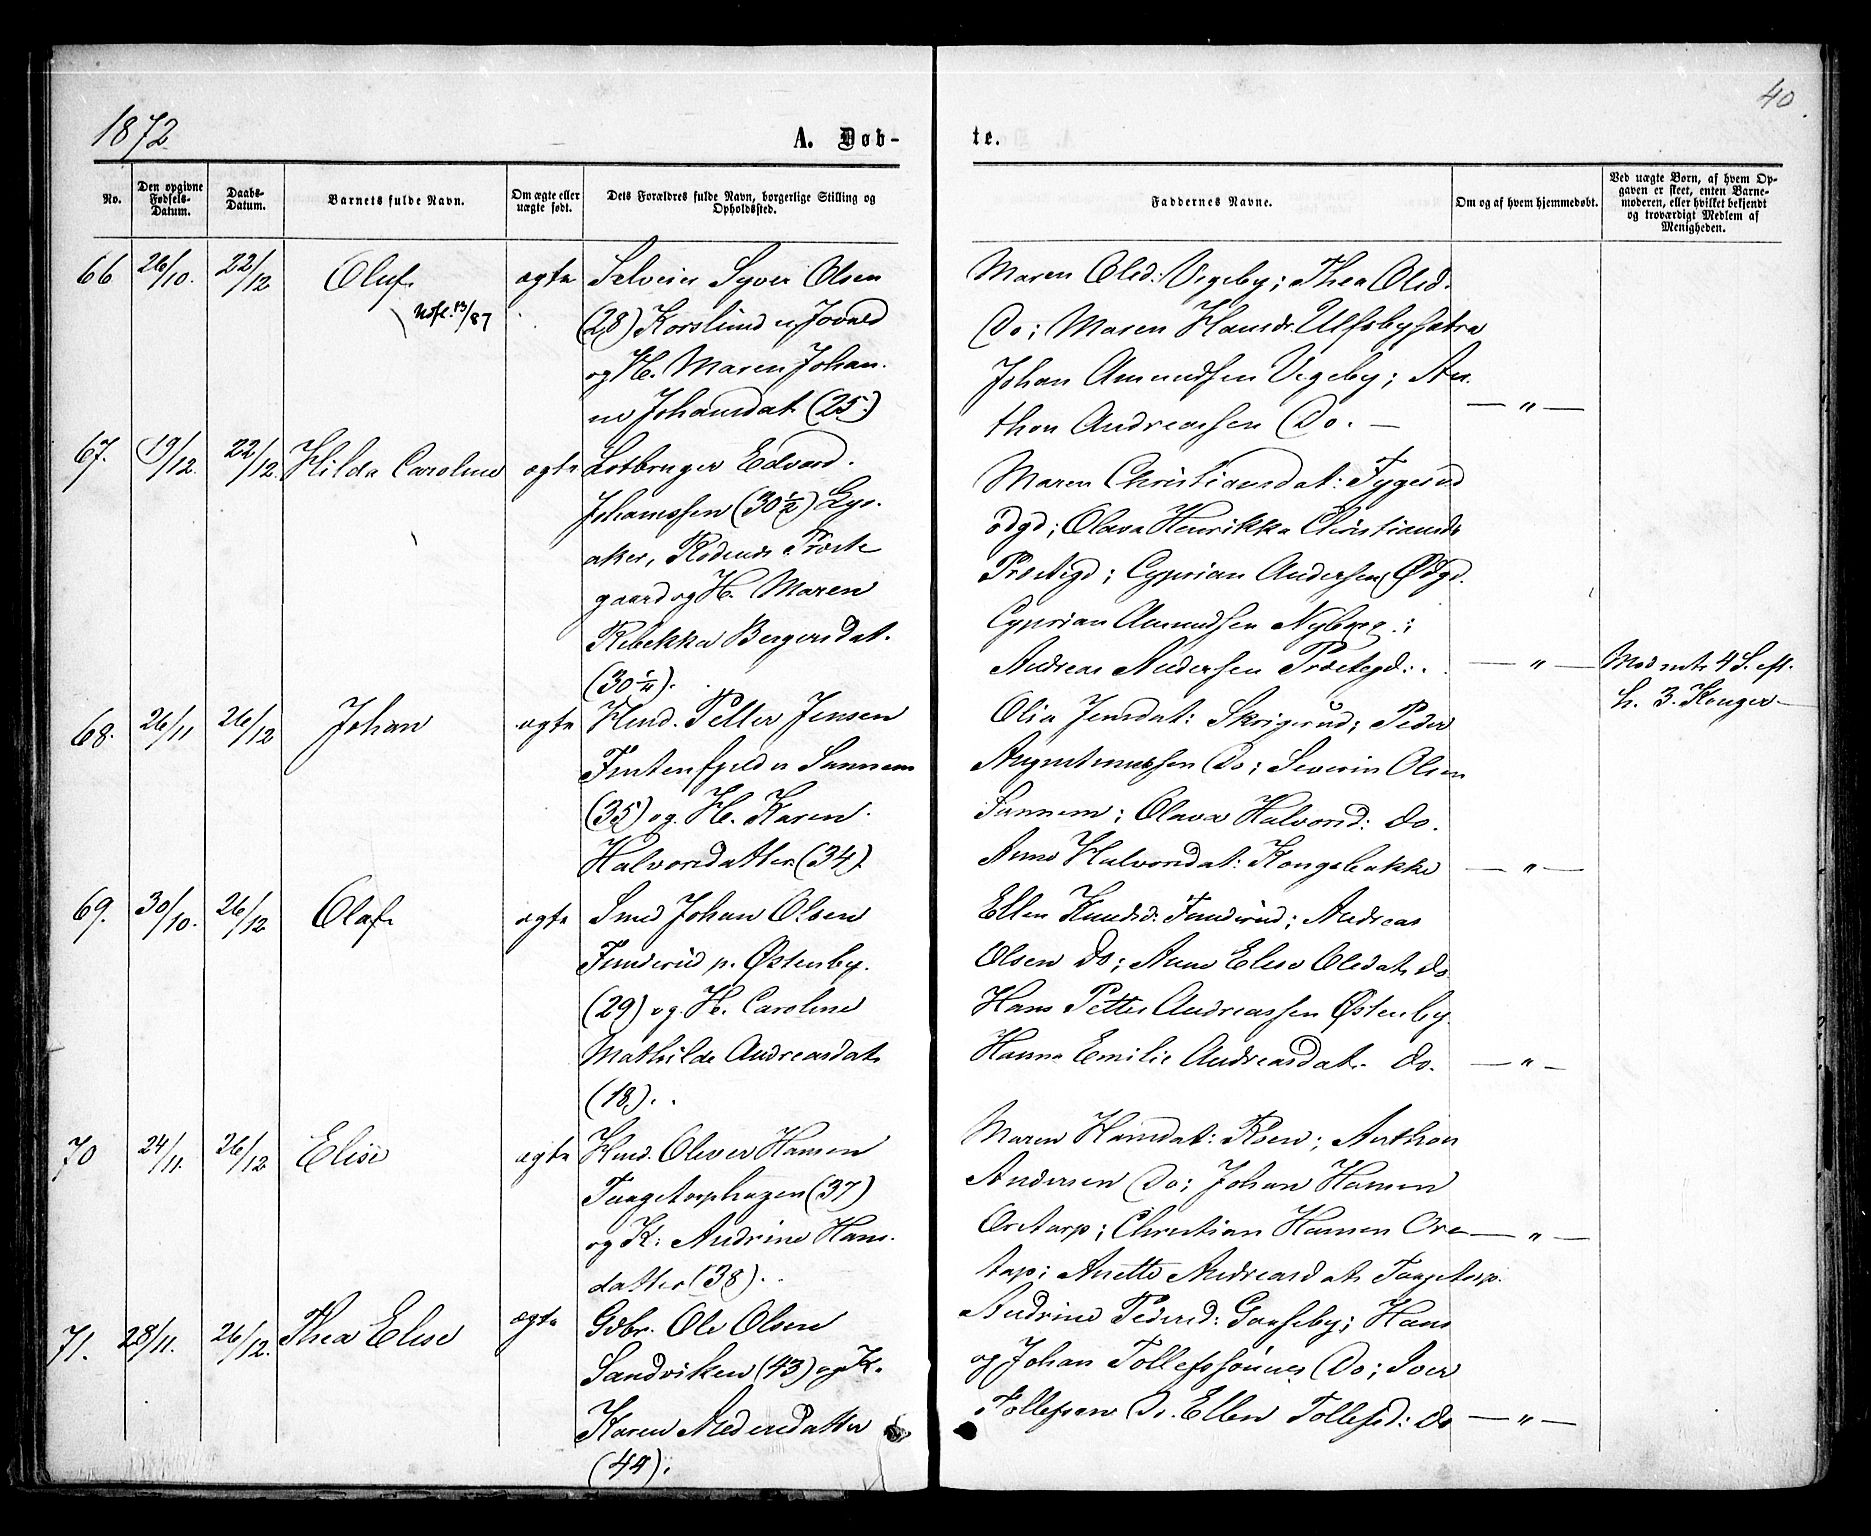 1872
40
A. Døb-
te.
No.
Den opgivne Fødsels-Datum.
Daabs-Datum.
Barnets fulde Navn.
Om ægte eller uægte født.
Dets Forældres fulde Navn, borgerlige Stilling og Opholdssted.
Faddernes Navne.
Om og af hvem hjemmedøbt.
Ved uægte Børn, af hvem Op-
gaven er skeet, enten Barne-
moderen, eller hvilket bekjendt
og troværdigt Medlem af
Menigheden.
66 26/10. 22/12 Oluf. ægte
Udfl. 13/87
Selveier Syver Olsen
(28) Korslund u. Jovald
og H. Maren Johan-
ne Johansdat. (25.)
Maren Olsd: Vegeby; Thea Olsd.
Do; Maren Hansdr. Ulfsbysætra
Johan Amundsen Vegeby; An-
thon Andreassen Do. — — " —
67. 19/12. 22/12. Hilda Caroline ægte
Lotbruger Edvard
Johannssen (30 1/2) Lys-
aker, Rødenæs Præste
gaard og H. Maren
Rebekka Bergersdat.
(30 1/4).
Maren Christiansdat:
ødgd; Olava Henrikka Christiansd.
Præstegd; Cyprian Andersen, Ødgd.
Cyprian Amundsen Nyborg;
Andreas Andersen Præstegd: — " —
4 S. eft.
h. 3. Konger
68. 26/11 26/12 Johan ægte
Husd. Petter Jensen
Sannem
(35) og H. Karen
Halvorsdatter (34).
Olia Jensdat: Skrigerud; Peder
Do; Severin Olsen
Sannem; Olava Halvorsd: do.
Anne Halvorsdat: Kongsbakke — " —
69. 30/10. 26/12 Olaf. ægte
Smed Johan Olsen
Funderud p. Østenby.
(29) og H. Caroline
Mathilde Andreasdat.
(18).
Ellen Knudsd: Funderud; Andreas
Olsen Do; Anne Elise Olsdat. do
Hans Petter Andreassen Østenby
Hanna Emilie Andreasdat. do. — " —
70 24/11. 26/12 Elise ægte
Husd. Oliver Hansen
Taagetorphagen (37)
og K: Andrine Hans-
datter (38).
Maren Hansdat: Roen; Anthon
Andersen Do; Johan Hansen
Oretorp; Christian Hansen Ore — " —
torp; Anette Andreasdat. Taagetorp.
71. 28/11. 26/12. Thea Elise ægte
Gdbr. Ole Olsen
Sandviken (43) og K.
Karen
(44).
Andrine Pedersd: Gaaseby; Hans
og Johan Tollefssønner Do; Iver
Tollefsen Do. Ellen Tollefsd: do — " —